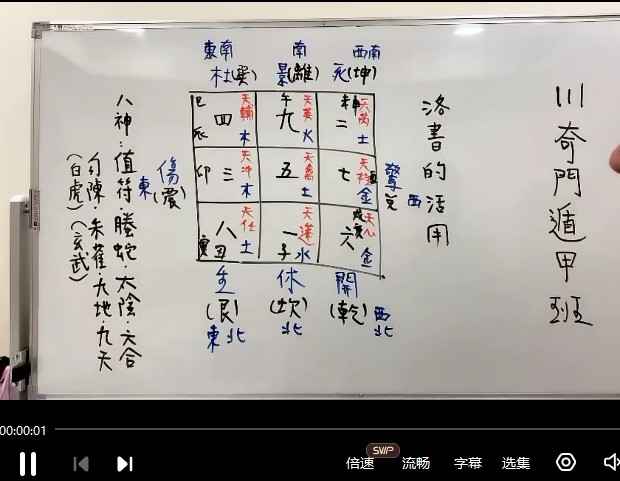 川奇門遁甲班
洛書的活用
東南 南 西南
杜(巽) 景(離) 死(坤)
巳 辰 四 天輔 木
午 九 天英 火
未申 二 天芮 土
傷(震) 東
卯 三 天冲 木
五 天禽 土
七 酉 天柱 金
驚 兌 西
寅 八 丑 天任 土
一 子 天蓬 水
戌亥 六 天心 金
生 休 開
(艮) (坎) (乾)
東北 北 西北
八神:值符·螣蛇·太陰·六合
勾陳·朱雀·九地·九天
(白虎) (玄武)
00:00:01
倍速 SVIP 流畅 字幕 选集